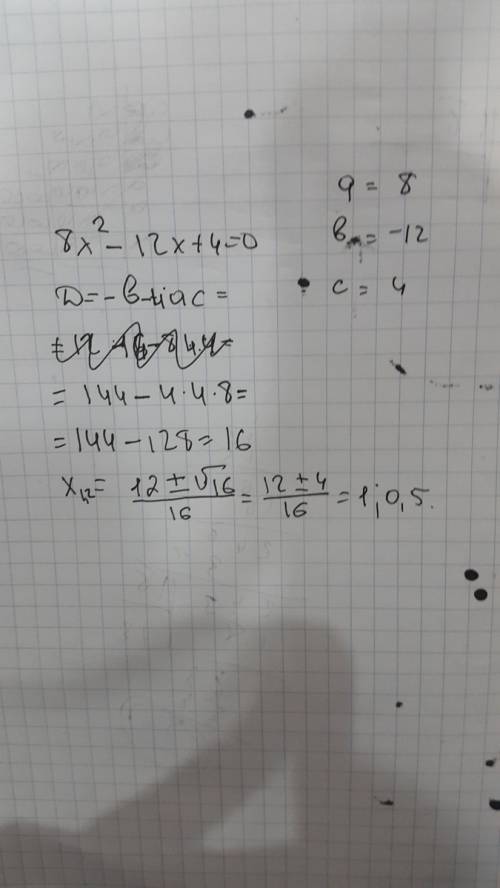 a = 8
8x² - 12x + 4 = 0
в = -12
D = -в-4ac =
c = 4
= 144 - 4·4·8 =
= 144 - 128 = 16
x₁,₂ = (12 ± √16)/16 = (12 ± 4)/16 = 1; 0,5.